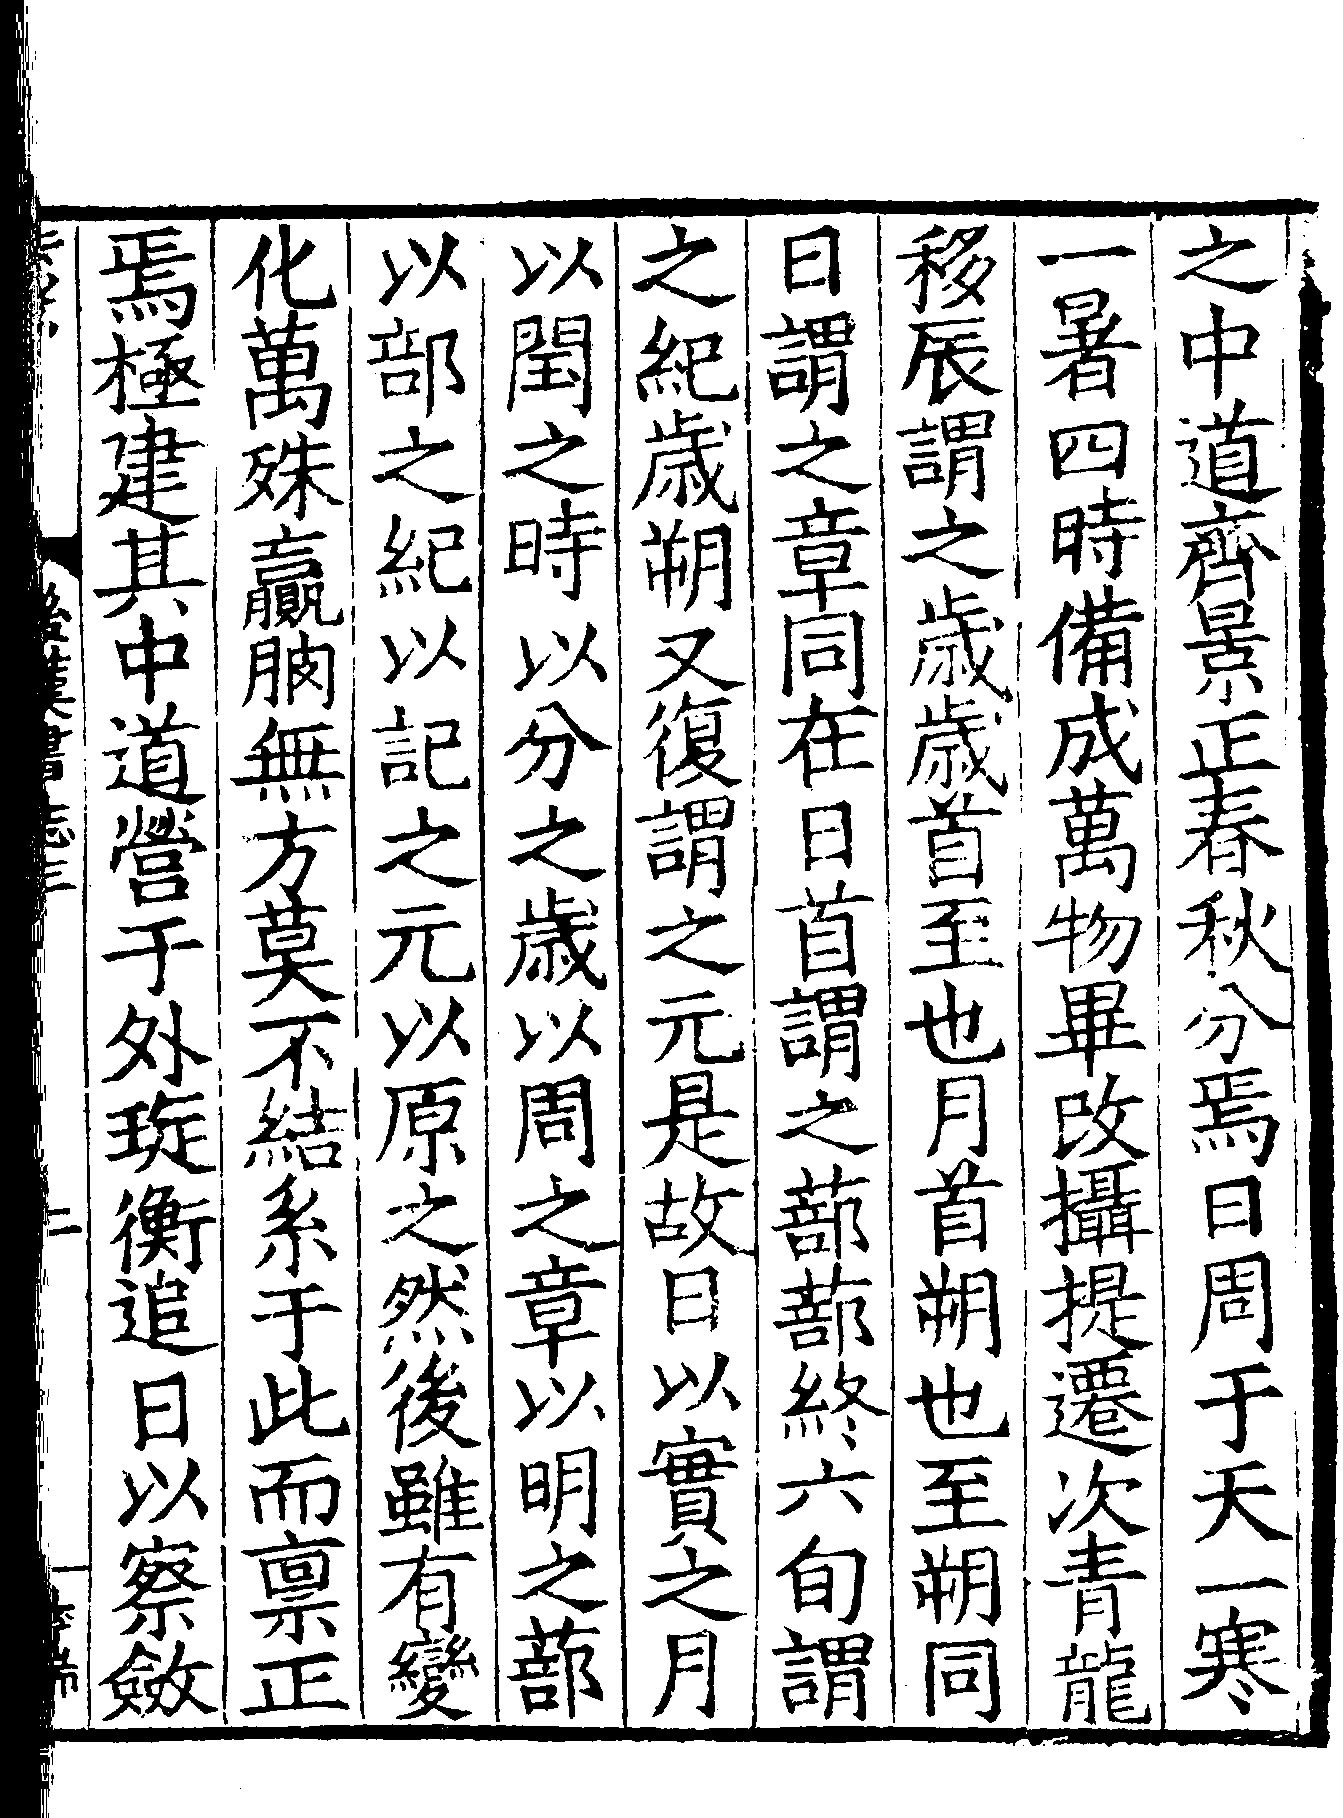 之中道齊景正春秋分焉日周于天一寒
一暑四時備成萬物畢改攝提遷次青龍
移辰謂之歲歲首至也月首朔也至朔同
日謂之章同在日首謂之蔀蔀終六旬謂
之紀歲朔又復謂之元是故日以實之月
以閏之時以分之歲以周之章以明之蔀
以部之紀以記之元以原之然後雖有變
化萬殊贏朒無方莫不結系于此而稟正
焉極建其中道營于外琁衡追日以察斂
後漢書志三
二